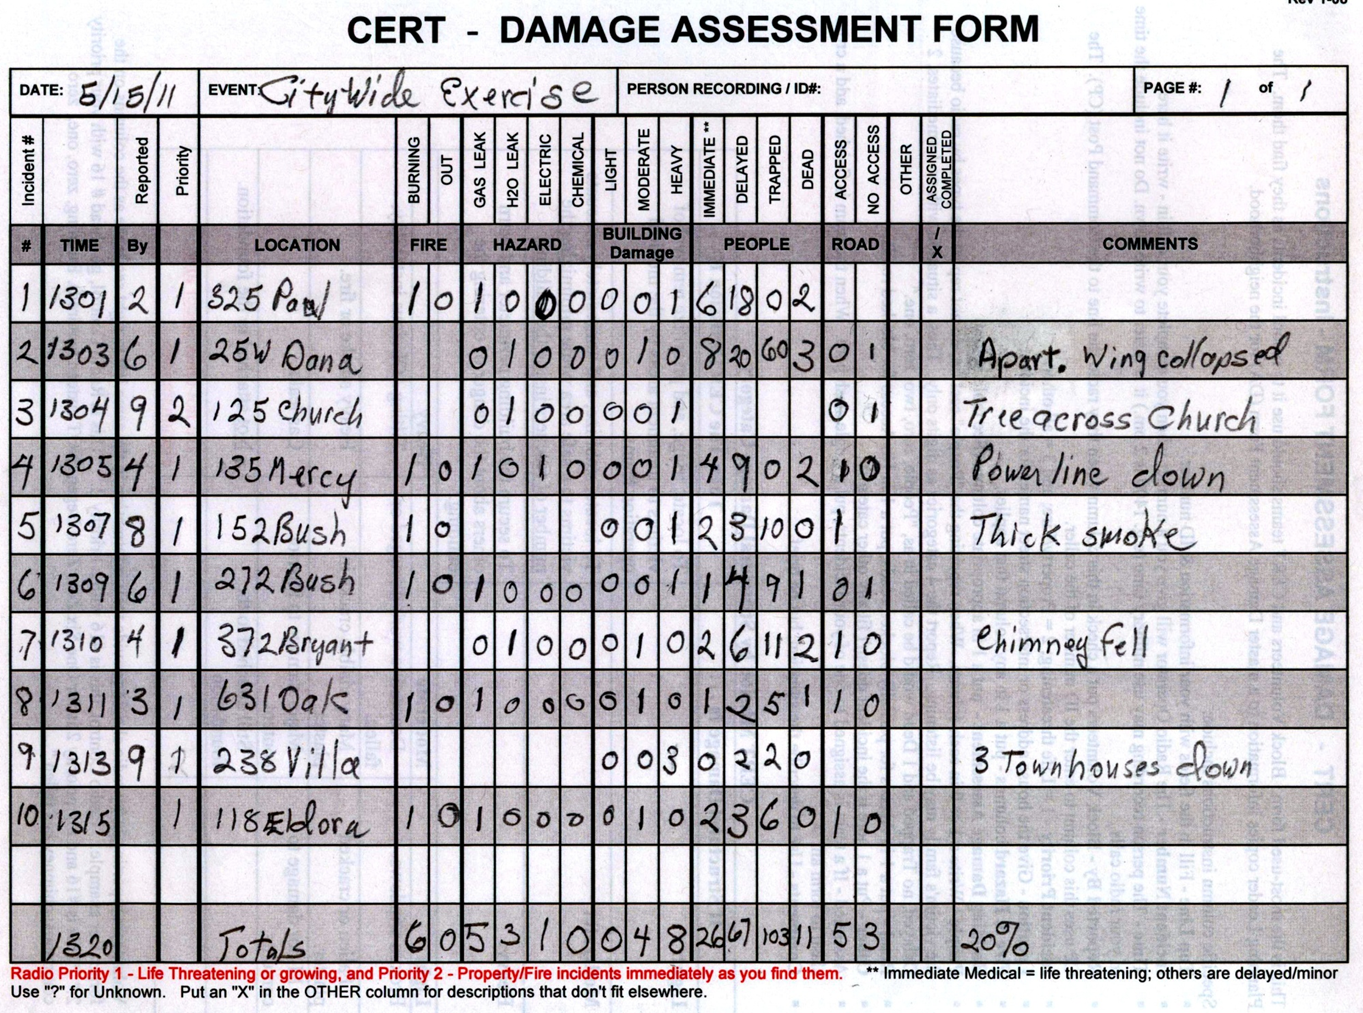 CERT - DAMAGE ASSESSMENT FORM
DATE: 5/15/11 EVENT: CityWide Exercise PERSON RECORDING / ID#: PAGE #: 1 of 1
Incident # Reported Priority BURNING OUT GAS LEAK H2O LEAK ELECTRIC CHEMICAL LIGHT MODERATE HEAVY IMMEDIATE ** DELAYED TRAPPED DEAD ACCESS NO ACCESS OTHER ASSIGNED COMPLETED
# TIME By LOCATION FIRE HAZARD BUILDING Damage PEOPLE ROAD / X COMMENTS
1 1301 2 1 325 Paul 1 0 1 0 0 0 0 0 1 6 18 0 2
2 1303 6 1 25W Dana 0 1 0 0 0 1 0 8 20 60 3 0 1 Apart. Wing collapsed
3 1304 9 2 125 Church 0 1 0 0 0 0 1 0 1 Tree across Church
4 1305 4 1 135 Mercy 1 0 1 0 1 0 0 0 1 4 9 0 2 1 0 Power line down
5 1307 8 1 152 Bush 1 0 0 0 1 2 3 10 0 1 Thick smoke
6 1309 6 1 272 Bush 1 0 1 0 0 0 0 0 1 1 4 9 1 0 1
7 1310 4 1 372 Bryant 0 1 0 0 0 1 0 2 6 11 2 1 0 Chimney fell
8 1311 3 1 631 Oak 1 0 1 0 0 0 0 1 0 1 2 5 1 1 0
9 1313 9 238 Villa 0 0 3 0 2 2 0 3 Townhouses down
10 1315 1 118 Eldora 1 0 1 0 0 0 0 1 0 2 3 6 0 1 0
1320 Totals 6 0 5 3 1 0 0 4 8 26 67 103 11 5 3 20%
Radio Priority 1 - Life Threatening or growing, and Priority 2 - Property/Fire incidents immediately as you find them. ** Immediate Medical = life threatening; others are delayed/minor
Use "?" for Unknown. Put an "X" in the OTHER column for descriptions that don't fit elsewhere.